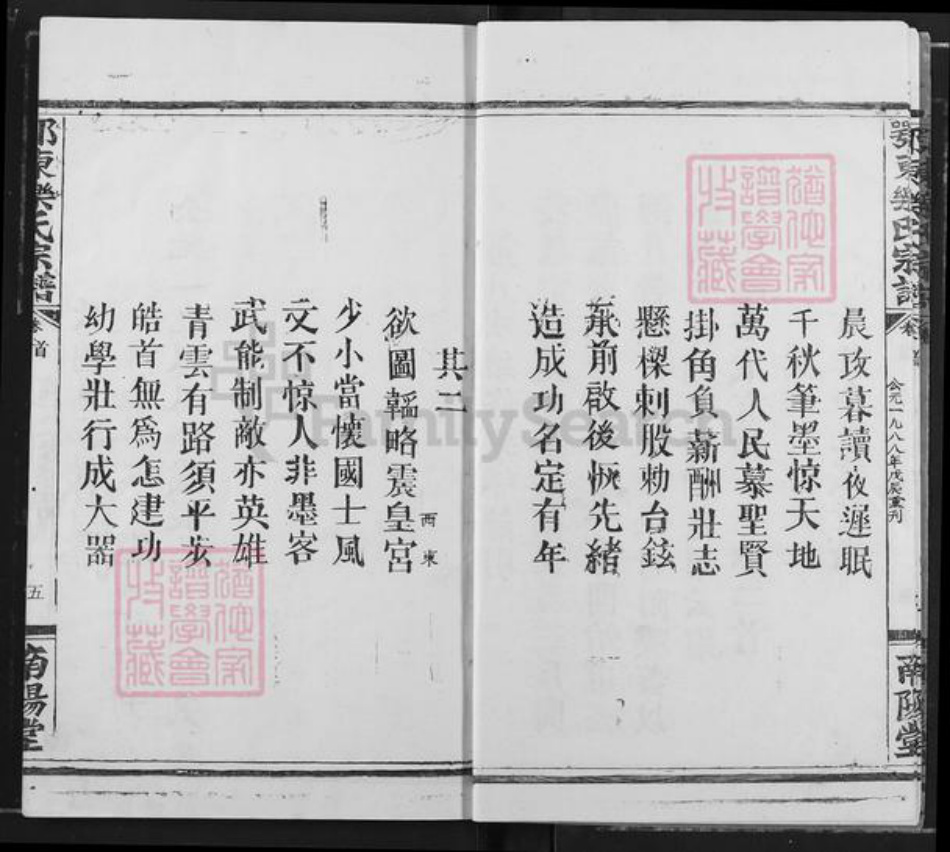 鄂東樂氏宗譜
卷首
公元一九八八年戊辰重刊
南陽堂
晨攻暮讀夜遲眠
千秋筆墨惊天地
萬代人民慕聖賢
掛角負薪酬壯志
懸樑刺股勅台鉉
承前啟後恢先緒
造成功名定有年
其二
西東
欲圖韜略震皇宮
少小當懷國士風
文不惊人非墨客
武能制敵亦英雄
青雲有路須平步
皓首無為怎建功
幼學壯行成大器
鄂東樂氏宗譜
卷首
五
南陽堂
譜學會
收藏
譜學會
收藏
FamilySearch